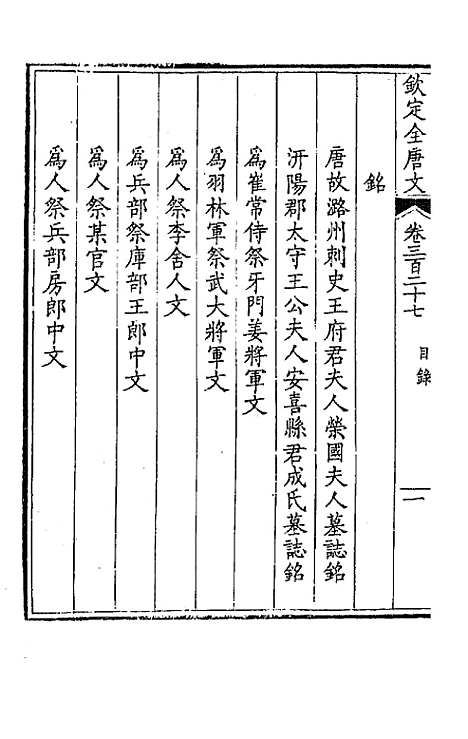 欽定全唐文 卷三百二十七 目錄 一
銘
唐故潞州刺史王府君夫人榮國夫人墓誌銘
汧陽郡太守王公夫人安喜縣君成氏墓誌銘
為崔常侍祭牙門姜將軍文
為羽林軍祭武大將軍文
為人祭李舍人文
為兵部祭庫部王郎中文
為人祭某官文
為人祭兵部房郎中文